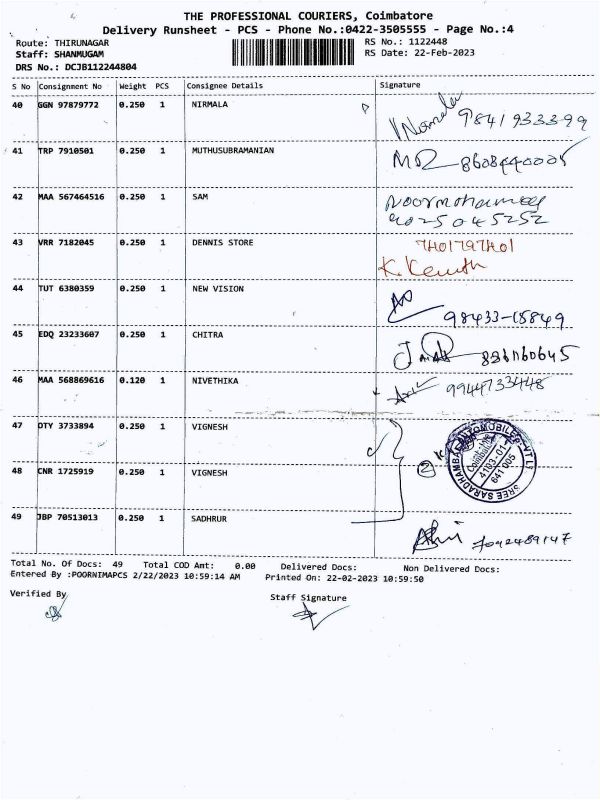 THE PROFESSIONAL COURIERS, Coimbatore
Delivery Runsheet - PCS - Phone No.:0422-3505555 - Page No.:4
Route: THIRUNAGAR RS No.: 1122448
Staff: SHANMUGAM RS Date: 22-Feb-2023
DRS No.: DCJB112244804
S No Consignment No Weight PCS Consignee Details Signature
40 GGN 97879772 0.250 1 NIRMALA Nirmala 9841933399
41 TRP 7910501 0.250 1 MUTHUSUBRAMANIAN 8608440005
42 MAA 567464516 0.250 1 SAM Noormohamed
9025045252
43 VRR 7182045 0.250 1 DENNIS STORE 7401797401
44 TUT 6380359 0.250 1 NEW VISION 98433-18849
45 EDQ 23233607 0.250 1 CHITRA
46 MAA 568869616 0.120 1 NIVETHIKA 9944733448
47 OTY 3733894 0.250 1 VIGNESH
48 CNR 1725919 0.250 1 VIGNESH
2
SREE SARADHAMBAL AUTOMOBILES
Coimbatore
641 005
49 JBP 70513013 0.250 1 SADHRUR
Total No. Of Docs: 49 Total COD Amt: 0.00 Delivered Docs: Non Delivered Docs:
Entered By :POORNIMAPCS 2/22/2023 10:59:14 AM Printed On: 22-02-2023 10:59:50
Verified By Staff Signature